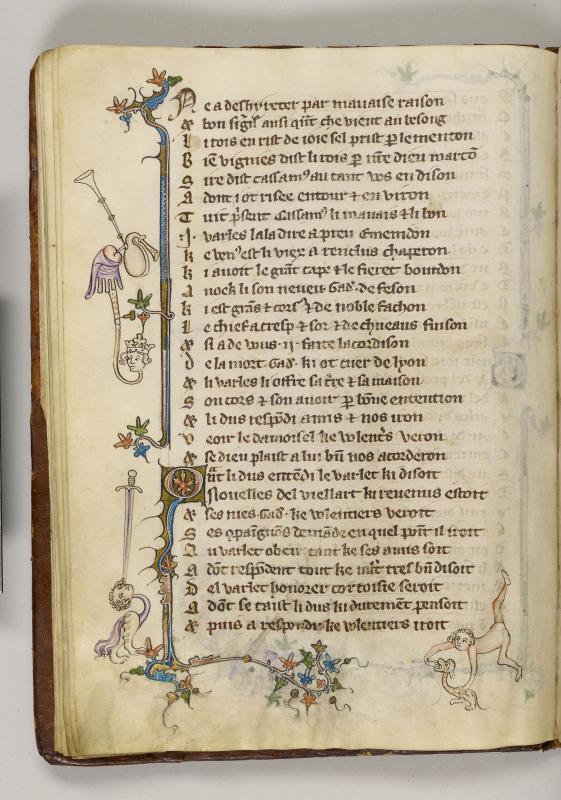 N e a deshyreter par mauaise raison
& bon sign᷑ ausi qn̄t che vient au besong
L i rois en rist de ioie sel prist ꝑ le menton
B iē vignies dist li rois ꝑ nr̄e dieu
S ire dist cassamꝰ au tant vos en dison
A dont iot risee entour ⁊ en viron
T uit cassamꝰ li mauais ⁊ li bon
varles la la dire a preu emenidon
k e venꝰ est li viex a renclus chaperon
k i auoit le giāt cape ⁊ le fieret bourdon
A uoek li son neueu Gad᷑ de feson
k i est grās ⁊ cors ⁊ de noble fachon
L e chief a cresp ⁊ sor ⁊ de cheueaus fuison
& si a de vous .ij. faite lacordison
D e la mort Gad᷑ ki ot cuer de lyon
& li varles li offre sa tr̄e ⁊ sa maison
S on cors ⁊ son auoir ꝑ bōne entention
& li dus respōdi amis ⁊ nos iron
V eoir le damoisel ke volentͥs veron
& se dieu plaist a lui bn̄ nos acorderon
Q āt li dus entēdi le varlet ki disoit
Nouelles del viellart ki reuenus estoit
& ses nies Gad᷑ ke volentiers veroit
S es ꝯpaīgnōs demāde en quel point il iroit
A u varlet obeir tant ke ses amis soit
A dōt respōdent tout ke ml̄t tres bn̄ disoit
D el varlet honorer cortoisie seroit
A dōt se taist li dus ki durement pensoit
& puis a respondu ke volentiers iroit